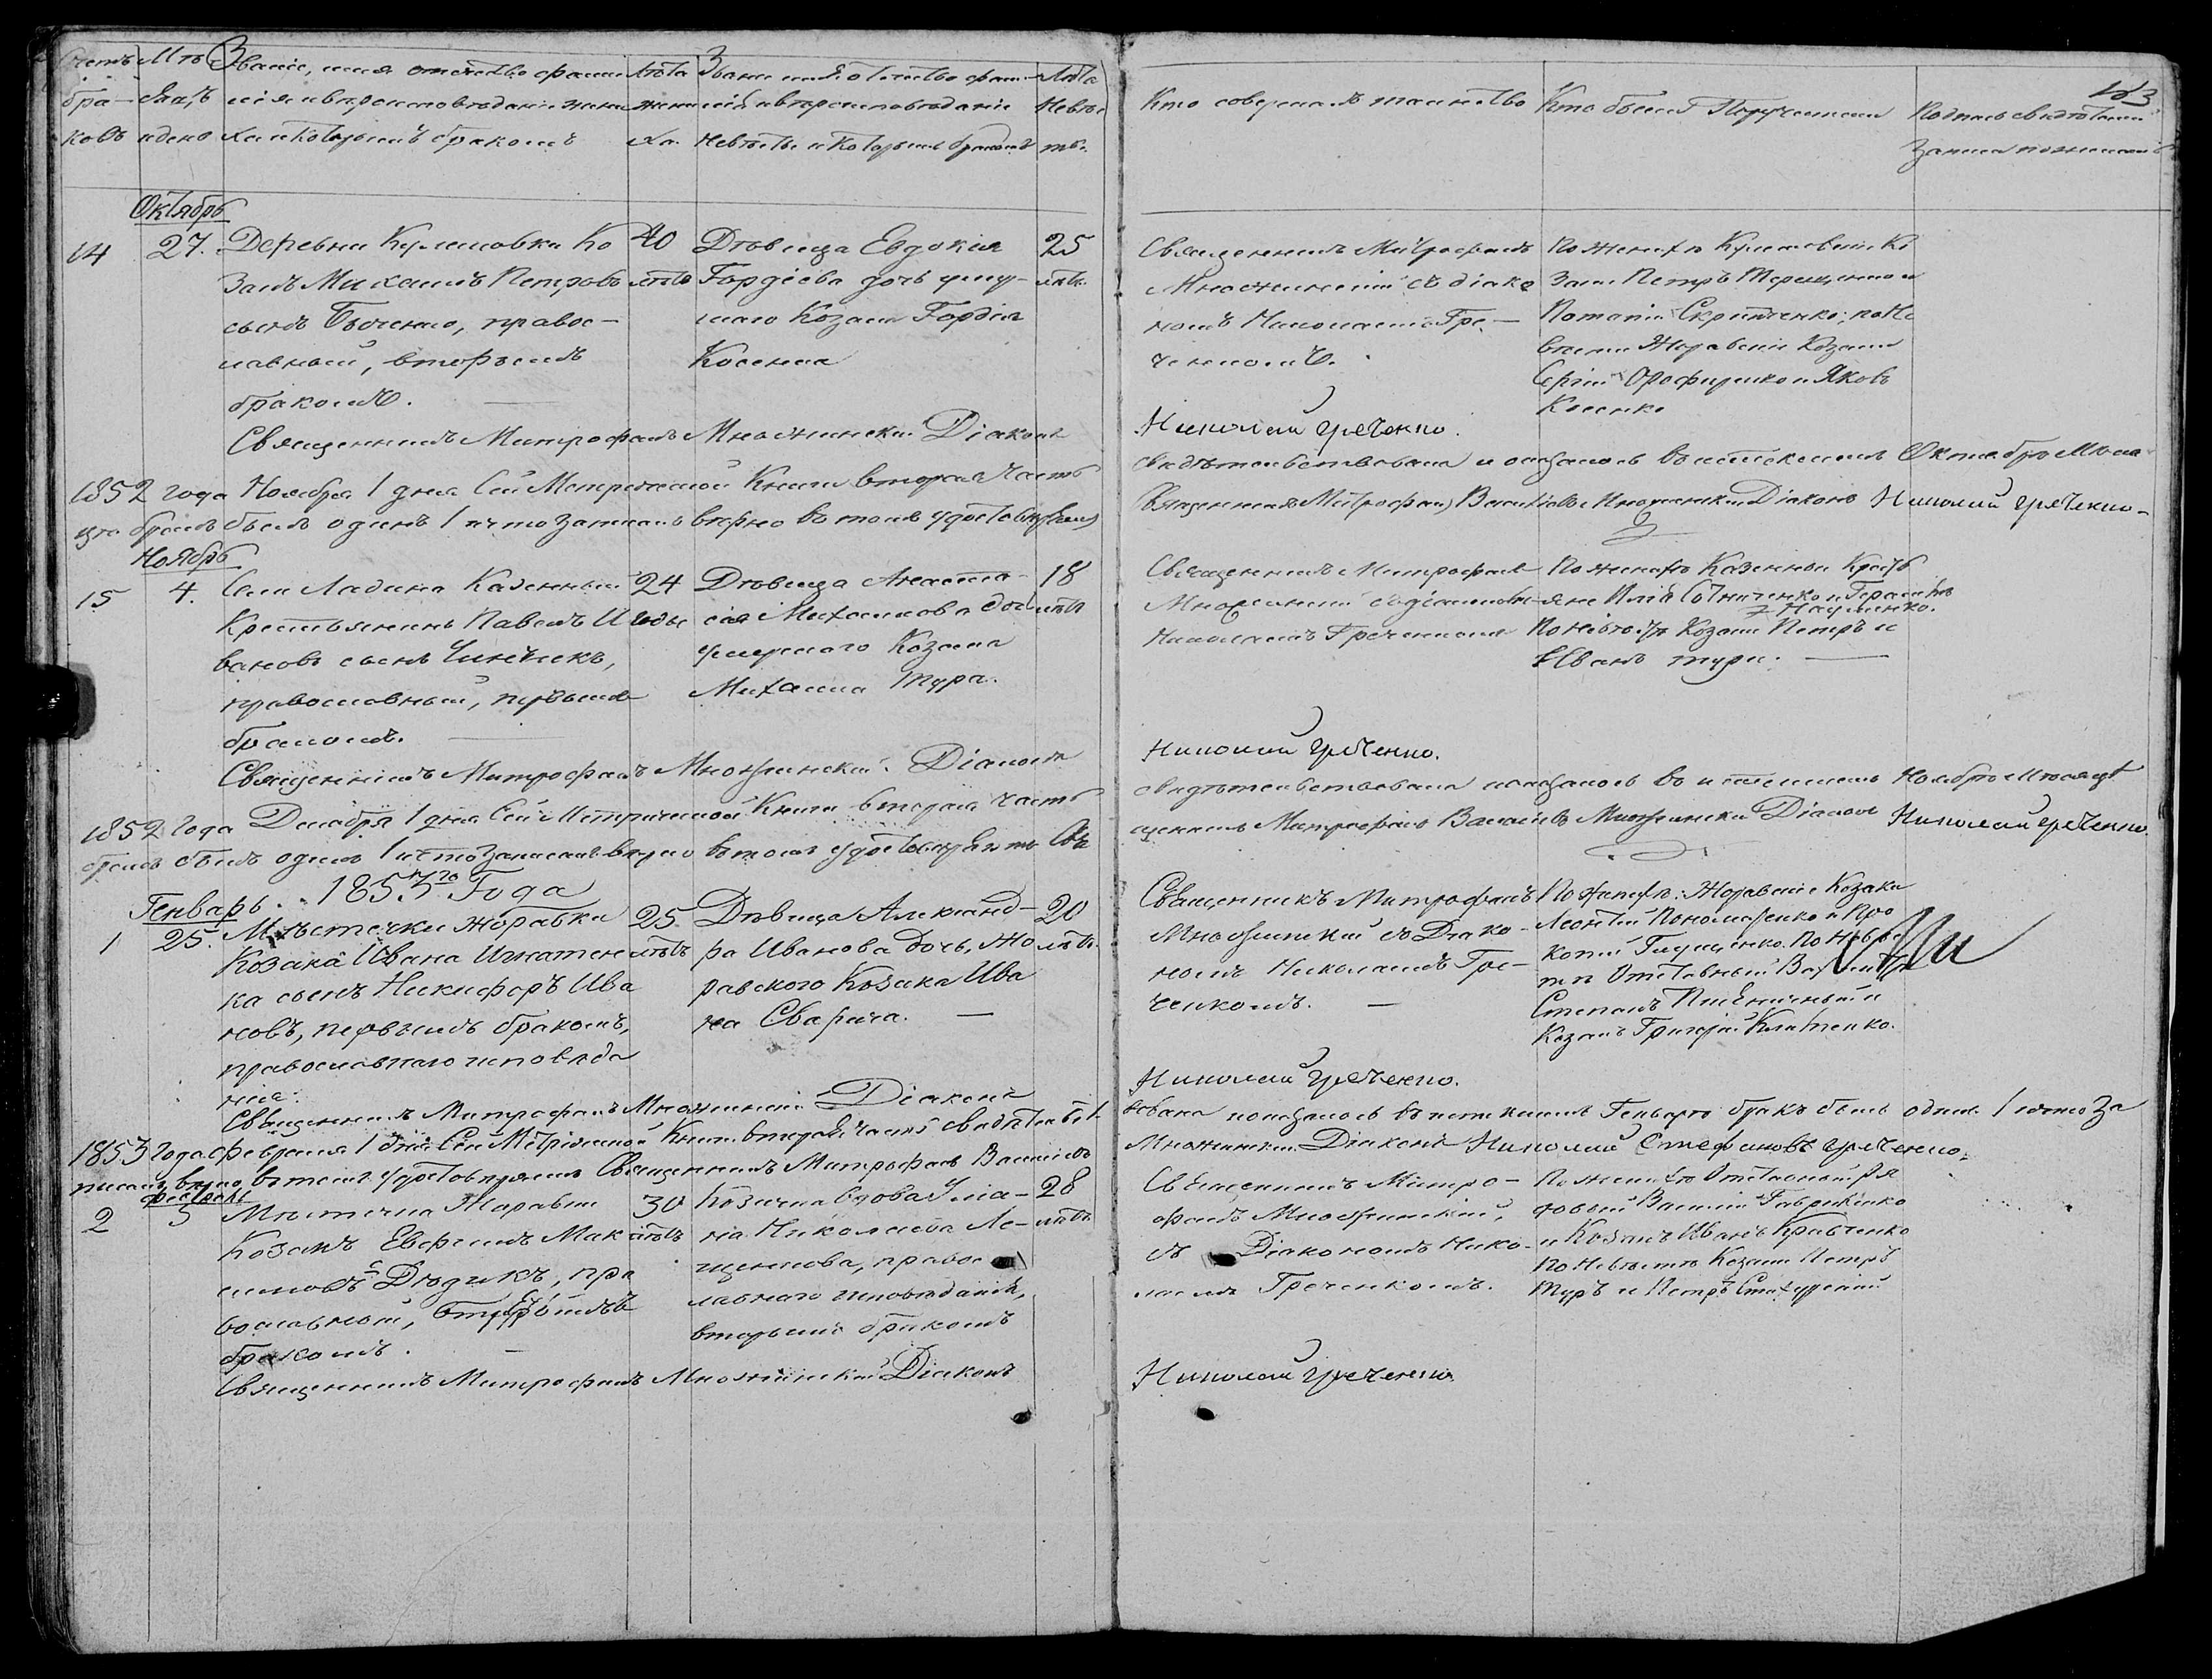 Счетъ бра-ковъ
Мѣсяцъ и день
Званіе, имя отчество фами
лія и вѣроисповѣданіе жени
ха и которымъ бракомъ
Лѣта
жени
ха.
Званіе имя отечество фам-
лія и вѣроисповѣданіе
невѣсты и которымъ бракомъ
Лѣта
Невѣс
ты.
Кто совершалъ таинство
Кто были Поручители
Подпись свидѣтелей
записи по желанію
Октябрь
14
27.
Деревни Кулишовки Ко
закъ Михаилъ Петровъ
сынъ православный, вторымъ
бракомъ.
40
лѣтъ
Дѣвица Евдокія
Гордіева дочь умер-
шаго Козака Гордія
Косенка
25
лѣтъ.
Священникъ Митрофанъ
Множинскій съ діако
номъ Николаемъ Гре-
ченкомъ.
По женихѣ Кулишовскіе Ко
заки Петръ Терещенко и
Потапій Скрипченко; по не
вѣстѣ Жоравскіе Козаки
Сергій и Яковъ
Косенко
Священникъ Митрофанъ Множинскій Діаконъ
Николай Греченко.
1852 года Ноября 1 дня Сей Метрической Книги вторая часть
свидѣтельствована и оказалось во истекшемъ Октябрѣ Меся
цѣ браковъ былъ одинъ 1 и что записанъ вѣрно въ томъ удостовѣряемъ
Священникъ Митрофанъ Васильевъ Множинскій Діаконъ Николай Греченко
Ноябрь
15
4.
Села Ладина Казенный
Крестьянинъ Павелъ И
вановъ сынъ Чичикъ,
православный, первымъ
бракомъ.
24
годы
Дѣвица Анаста-
сія Михаилова дочь
умершого Козака
Михаила Тура.
18
лѣтъ
Священникъ Митрофанъ
Множинскій съ діакономъ
Николаемъ Греченкомъ
По женихѣ Казенные Крест
яне Илія Сотниченко и Герасимъ
Науменко.
По невѣстѣ Козаки Петръ и
Иванъ Туры.
Священникъ Митрофанъ Множинскій. Діаконъ
Николай Греченко.
1852 Года Декабря 1 дня Сей Метрической Книги вторая часть
свидѣтельствована и оказалось во истекшемъ Ноябрѣ Мѣсяцѣ
браковъ былъ одинъ 1 и что записанъ вѣрно въ томъ удостовѣряемъ Свя
щенникъ Митрофанъ Васильевъ Множинскій Діаконъ Николай Греченко.
1853го Года
Генварь
1
25.
Мѣстечки Жоравки
Козака Ивана Игнатен
ка сынъ Никифоръ Ива
новъ, первымъ бракомъ,
православнаго исповѣда
нія.
25
лѣтъ
Дѣвица Александ-
ра Иванова дочь, Жо
равского Козака Ива
на Сварича.
20
лѣтъ.
Священникъ Митрофанъ
Множинскій съ Діако-
номъ Николаемъ Гре-
ченкомъ.
По женихѣ: Жоравскіе Козаки
Леонтій Пономаренко и Про
копій Глущенко. По невѣс
тѣ Отставный
Степанъ Пшеничный и
Козакъ Григорій
Священникъ Митрофанъ Множинскій Діаконъ
Николай Греченко.
1853 Года февраля 1 дня Сей Метрической Книги вторая часть свидѣтельст
вована и оказалось въ истекшемъ Генварѣ бракъ былъ одинъ 1 и что за
писанъ вѣрно, въ томъ удостовѣряемъ Священникъ Митрофанъ Васильевъ
Множинскій Діаконъ Николай Стефановъ Греченко.
Февраль
2
5
Мѣстечка Жаравки
Козакъ Евфимъ Мак
симовъ Дюдикъ, пра
вославный, вторымъ
бракомъ.
30
лѣтъ
Козачка вдова Улія-
на Николаева Ле-
щенкова, правос
лавнаго исповѣданія,
вторымъ бракомъ
28
лѣтъ
Священникъ Митро-
фанъ Множинскій,
съ Діакономъ Нико-
лаемъ Греченкомъ.
По женихѣ Отставный Ря
довый Василій Гавриленко
и Козакъ Иванъ Кравченко
По невѣстѣ Козаки Петръ
Туръ и Петръ
Священникъ Митрофанъ Множинскій Діаконъ
Николай Греченко